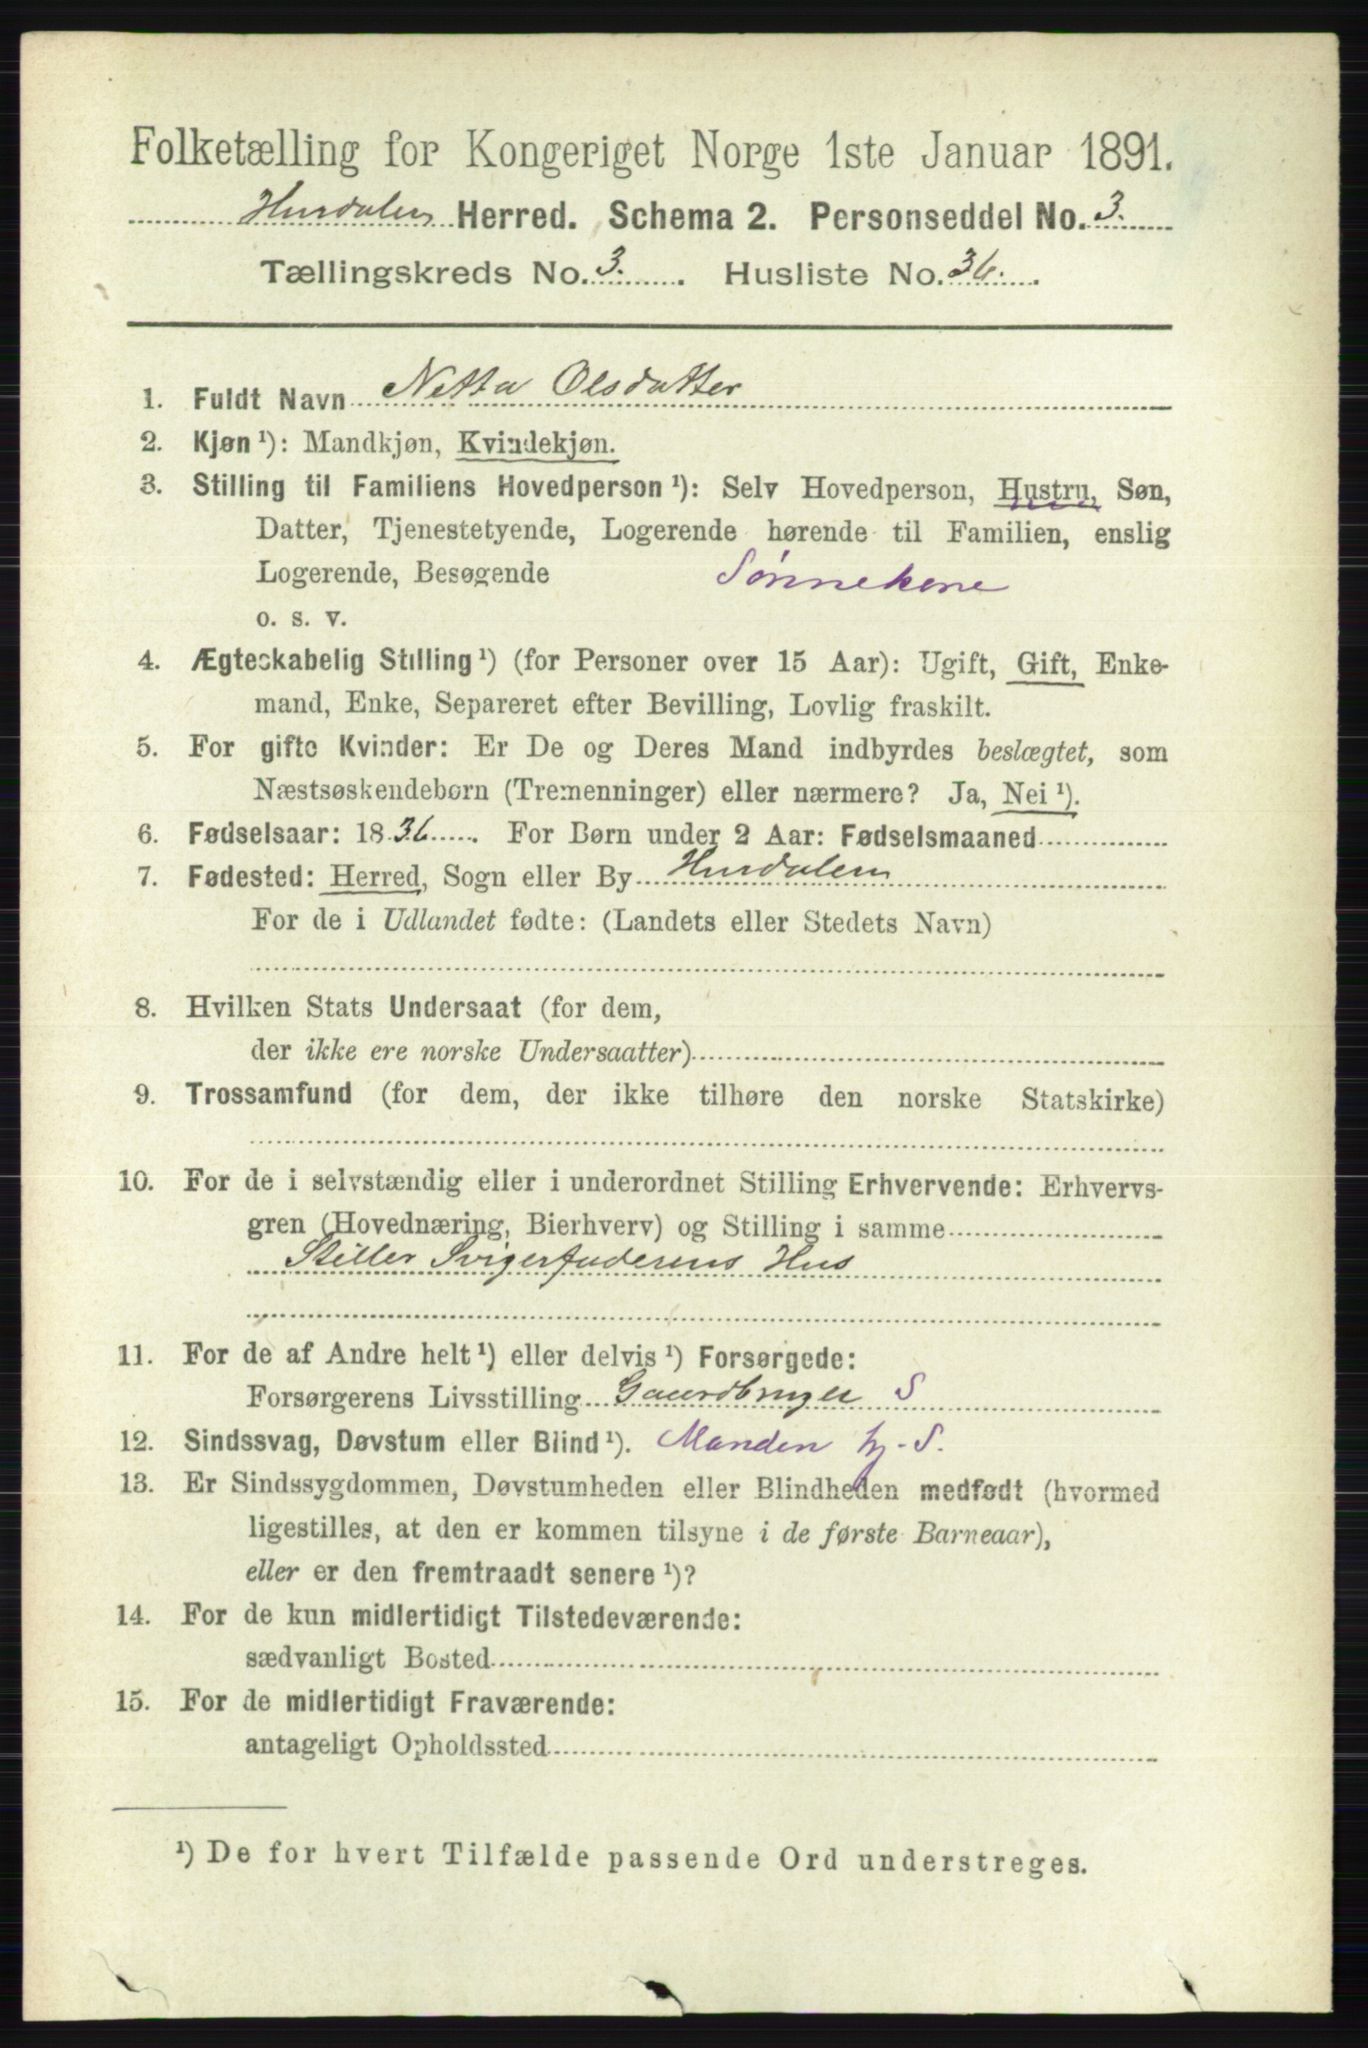 Folketælling for Kongeriget Norge 1ste Januar 1891.
Hurdalen Herred. Schema 2. Personseddel No. 3.
Tællingskreds No. 3. Husliste No. 36.
1. Fuldt Navn Netta Olsdatter
2. Kjøn¹): Mandkjøn, Kvindekjøn.
3. Stilling til Familiens Hovedperson¹): Selv Hovedperson, Hustru, Søn,
Datter, Tjenestetyende, Logerende hørende til Familien, enslig
Logerende, Besøgende Sønnekone
o. s. v.
4. Ægteskabelig Stilling¹) (for Personer over 15 Aar): Ugift, Gift, Enke-
mand, Enke, Separeret efter Bevilling, Lovlig fraskilt.
5. For gifte Kvinder: Er De og Deres Mand indbyrdes beslægtet, som
Næstsøskendebørn (Tremenninger) eller nærmere? Ja, Nei¹).
6. Fødselsaar: 1836. For Børn under 2 Aar: Fødselsmaaned
7. Fødested: Herred, Sogn eller By Hurdalen
For de i Udlandet fødte: (Landets eller Stedets Navn)
8. Hvilken Stats Undersaat (for dem,
der ikke ere norske Undersaatter)
9. Trossamfund (for dem, der ikke tilhøre den norske Statskirke)
10. For de i selvstændig eller i underordnet Stilling Erhvervende: Erhvervs-
gren (Hovednæring, Bierhverv) og Stilling i samme
Steller Svigerfaderens Hus
11. For de af Andre helt¹) eller delvis¹) Forsørgede:
Forsørgerens Livsstilling Gaardbruger S
12. Sindssvag, Døvstum eller Blind¹). Manden hj-S.
13. Er Sindssygdommen, Døvstumheden eller Blindheden medfødt (hvormed
ligestilles, at den er kommen tilsyne i de første Barneaar),
eller er den fremtraadt senere¹)?
14. For de kun midlertidigt Tilstedeværende:
sædvanligt Bosted
15. For de midlertidigt Fraværende:
antageligt Opholdssted
¹) De for hvert Tilfælde passende Ord understreges.